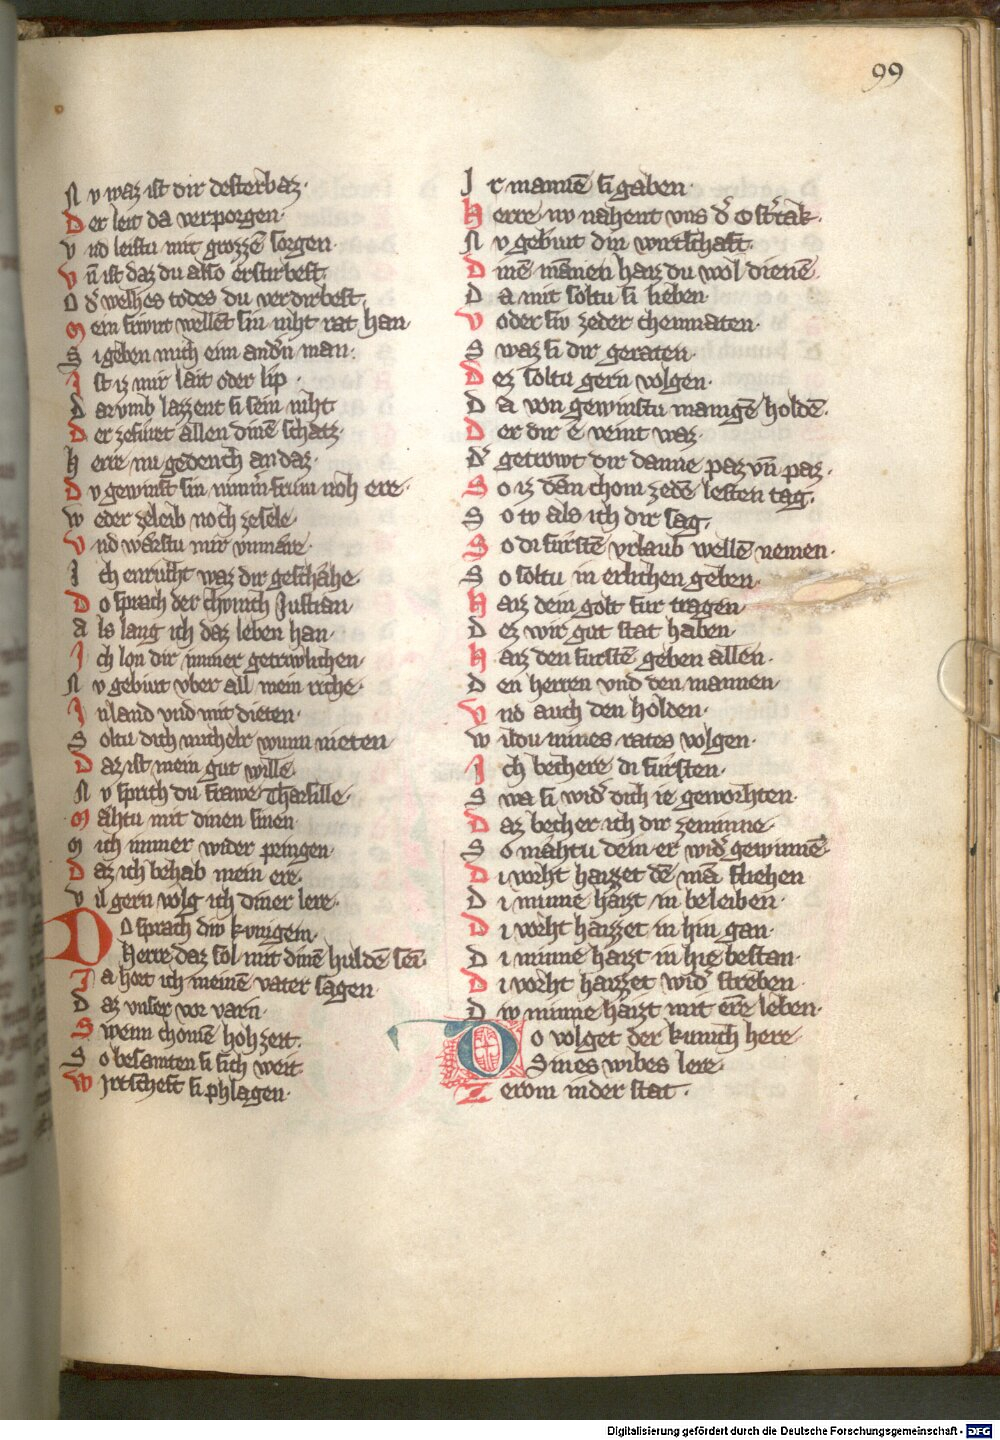 99
N v waz ist dir desterbaz·
D er leit da verporgen·
V nd leistu mit grozzē sorgen·
V n̄ ist daz du also erstirbest·
O d̾ welhes todes du verdirbest·
M ein friwnt wellēt sin niht rat han·
S i geben mich eim and̾n man·
I st iz mir lait oder lip·
D arvmb lazzent si sein niht
D er zefuͤrt allen dinē schatz·
H erre nu gedench an daz·
D v gewinst sin nimm̾ frum noh ere·
W eder zeleib noch zesele·
V nd wærstu mir vnmære·
I ch enruͦcht waz dir geschahe·
D o sprach der chvnich Justian·
A ls lang ich daz leben han·
I ch lon dir immer getriwlichen·
N v gebiut vber all mein riche·
I n land vnd mit dieten·
S oltu dich michelr wunn nieten·
D az ist mein gut wille·
N v sprich du frawe Tharsille·
M ahtu mit dinen sinen·
M ich immer wider pringen·
D az ich behab mein ere·
V il gern volg ich diner lere·
D O sprach diw kvnigein·
Herre daz sol mit dinē huldē sein·
J a hoͤrt ich meinen vater sagen·
D az vnser vor varn·
S wenn chomē hohzeit·
S o besamten si sich weit
W irtscheft si phlagen·
J r mannē si gaben·
H erre nv nahent vns d̾ ost̾tak·
N v gebiut din wirtschaft·
D inē mannen haiz du wol dienē·
D a mit soltu si lieben·
V oder siv zeder chemnaten·
S waz si dir geraten·
D ez soltu gern volgen·
D a von gewinstu manigē holdē·
D er dir e veint waz·
D̾ getrowt dir danne paz vn̄ paz·
S o iz dan chom zedē lesten tag·
S o tv als ich dir sag·
S o di furstē vrlaub wellē nemen·
S o soltu in erlichen geben·
H aiz dein golt fur tragen·
D ez wir gut stat haben·
H aiz den furstē geben allen·
D en herren vnd den mannen·
V nd auch den holden·
W ildu mines rates volgen·
I ch bechere di fursten·
S wa si wid̾ dich ie geworhten·
D az becher ich dir zeminne·
S o mahtu dein er wid̾ gewinnē·
D i vorht haizzet dē mā fliehen
D i minne haizt in beleiben·
D i vorht haizzet in hin gan·
D i minne haizt in hie bestan·
D i vorht haizzet wid̾ streben·
D iv minne haizt mit ere leben·
D o volget der kunich here·
Sines wibes lere·
Z erom in der stat·
Digitalisierung gefördert durch die Deutsche Forschungsgemeinschaft - DFG